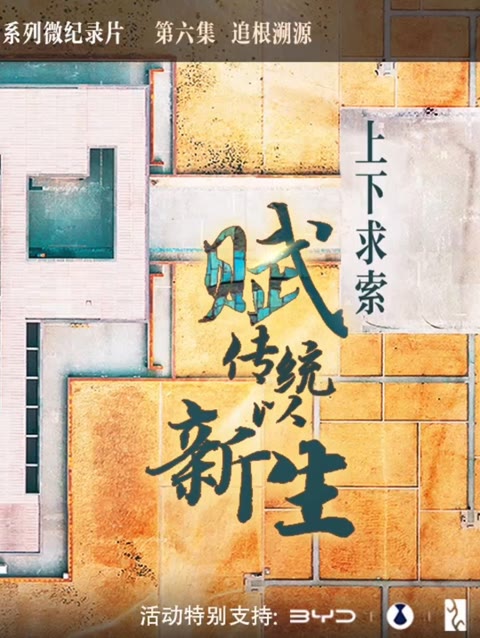 系列微纪录片 第六集 追根溯源
上下求索
赋
传统以
新生
活动特别支持: BYD